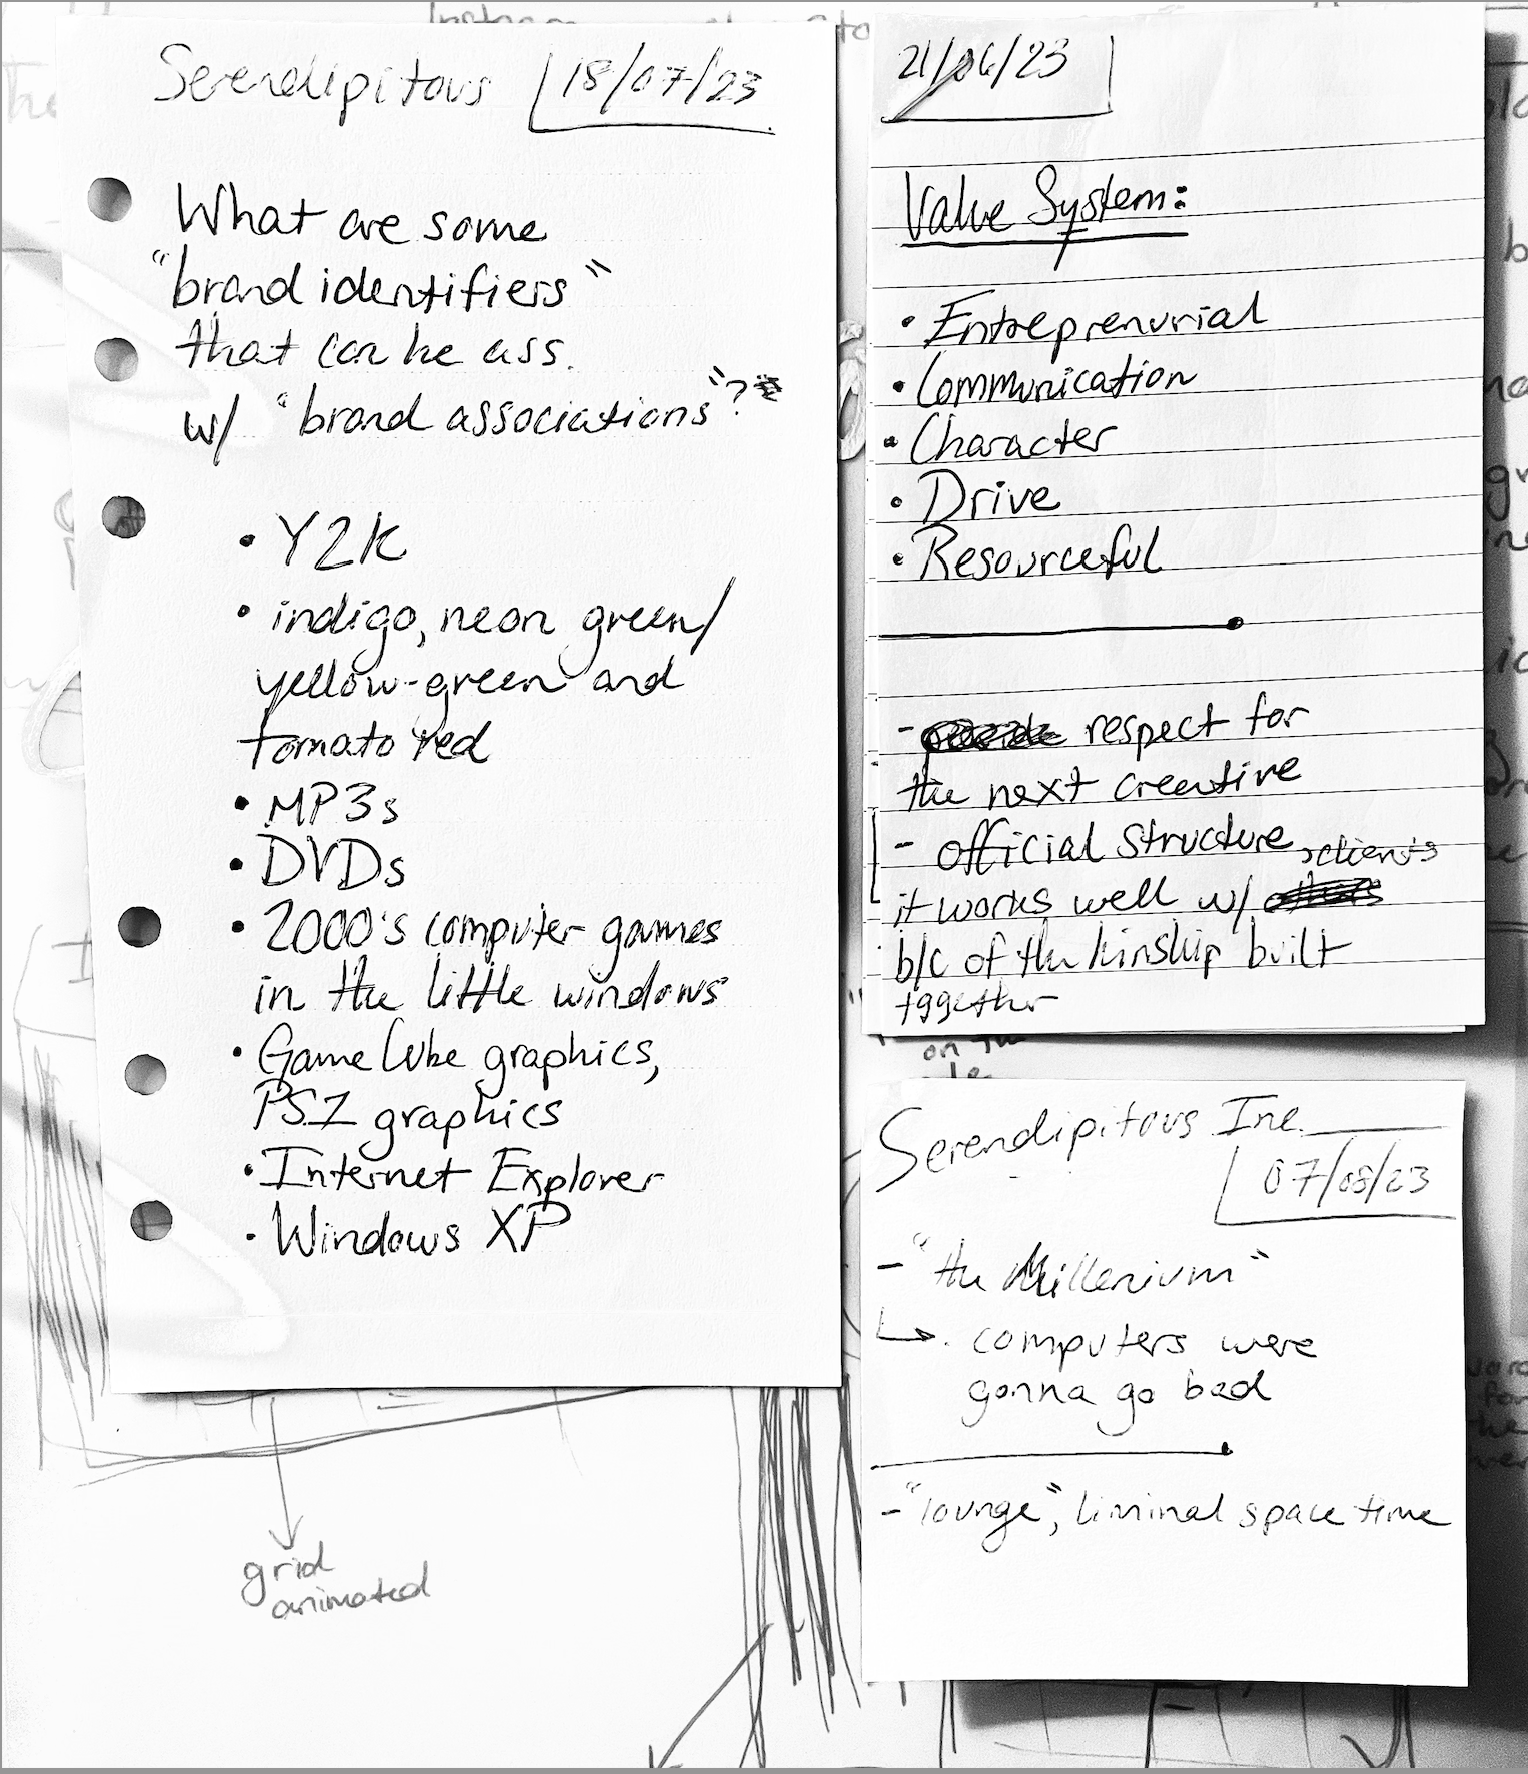 Serendipitous 18/07/23
What are some
"brand identifiers"
that can be ass.
w/ "brand associations"?
• Y2K
• indigo, neon green/
yellow-green and
tomato red
• MP3s
• DVDs
• 2000's computer games
in the little windows
• GameCube graphics,
PS1 graphics
• Internet Explorer
• Windows XP
grid
animated
21/06/23
Value System:
• Entreprenurial
• Communication
• Character
• Drive
• Resourceful
- respect for
the next creative
- official structure
clients
it works well w/
b/c of the kinship built
together
on the
Serendipitous Inc.
07/08/23
- "the Millenium"
↳ computers were
gonna go bad
- "lounge", liminal space time